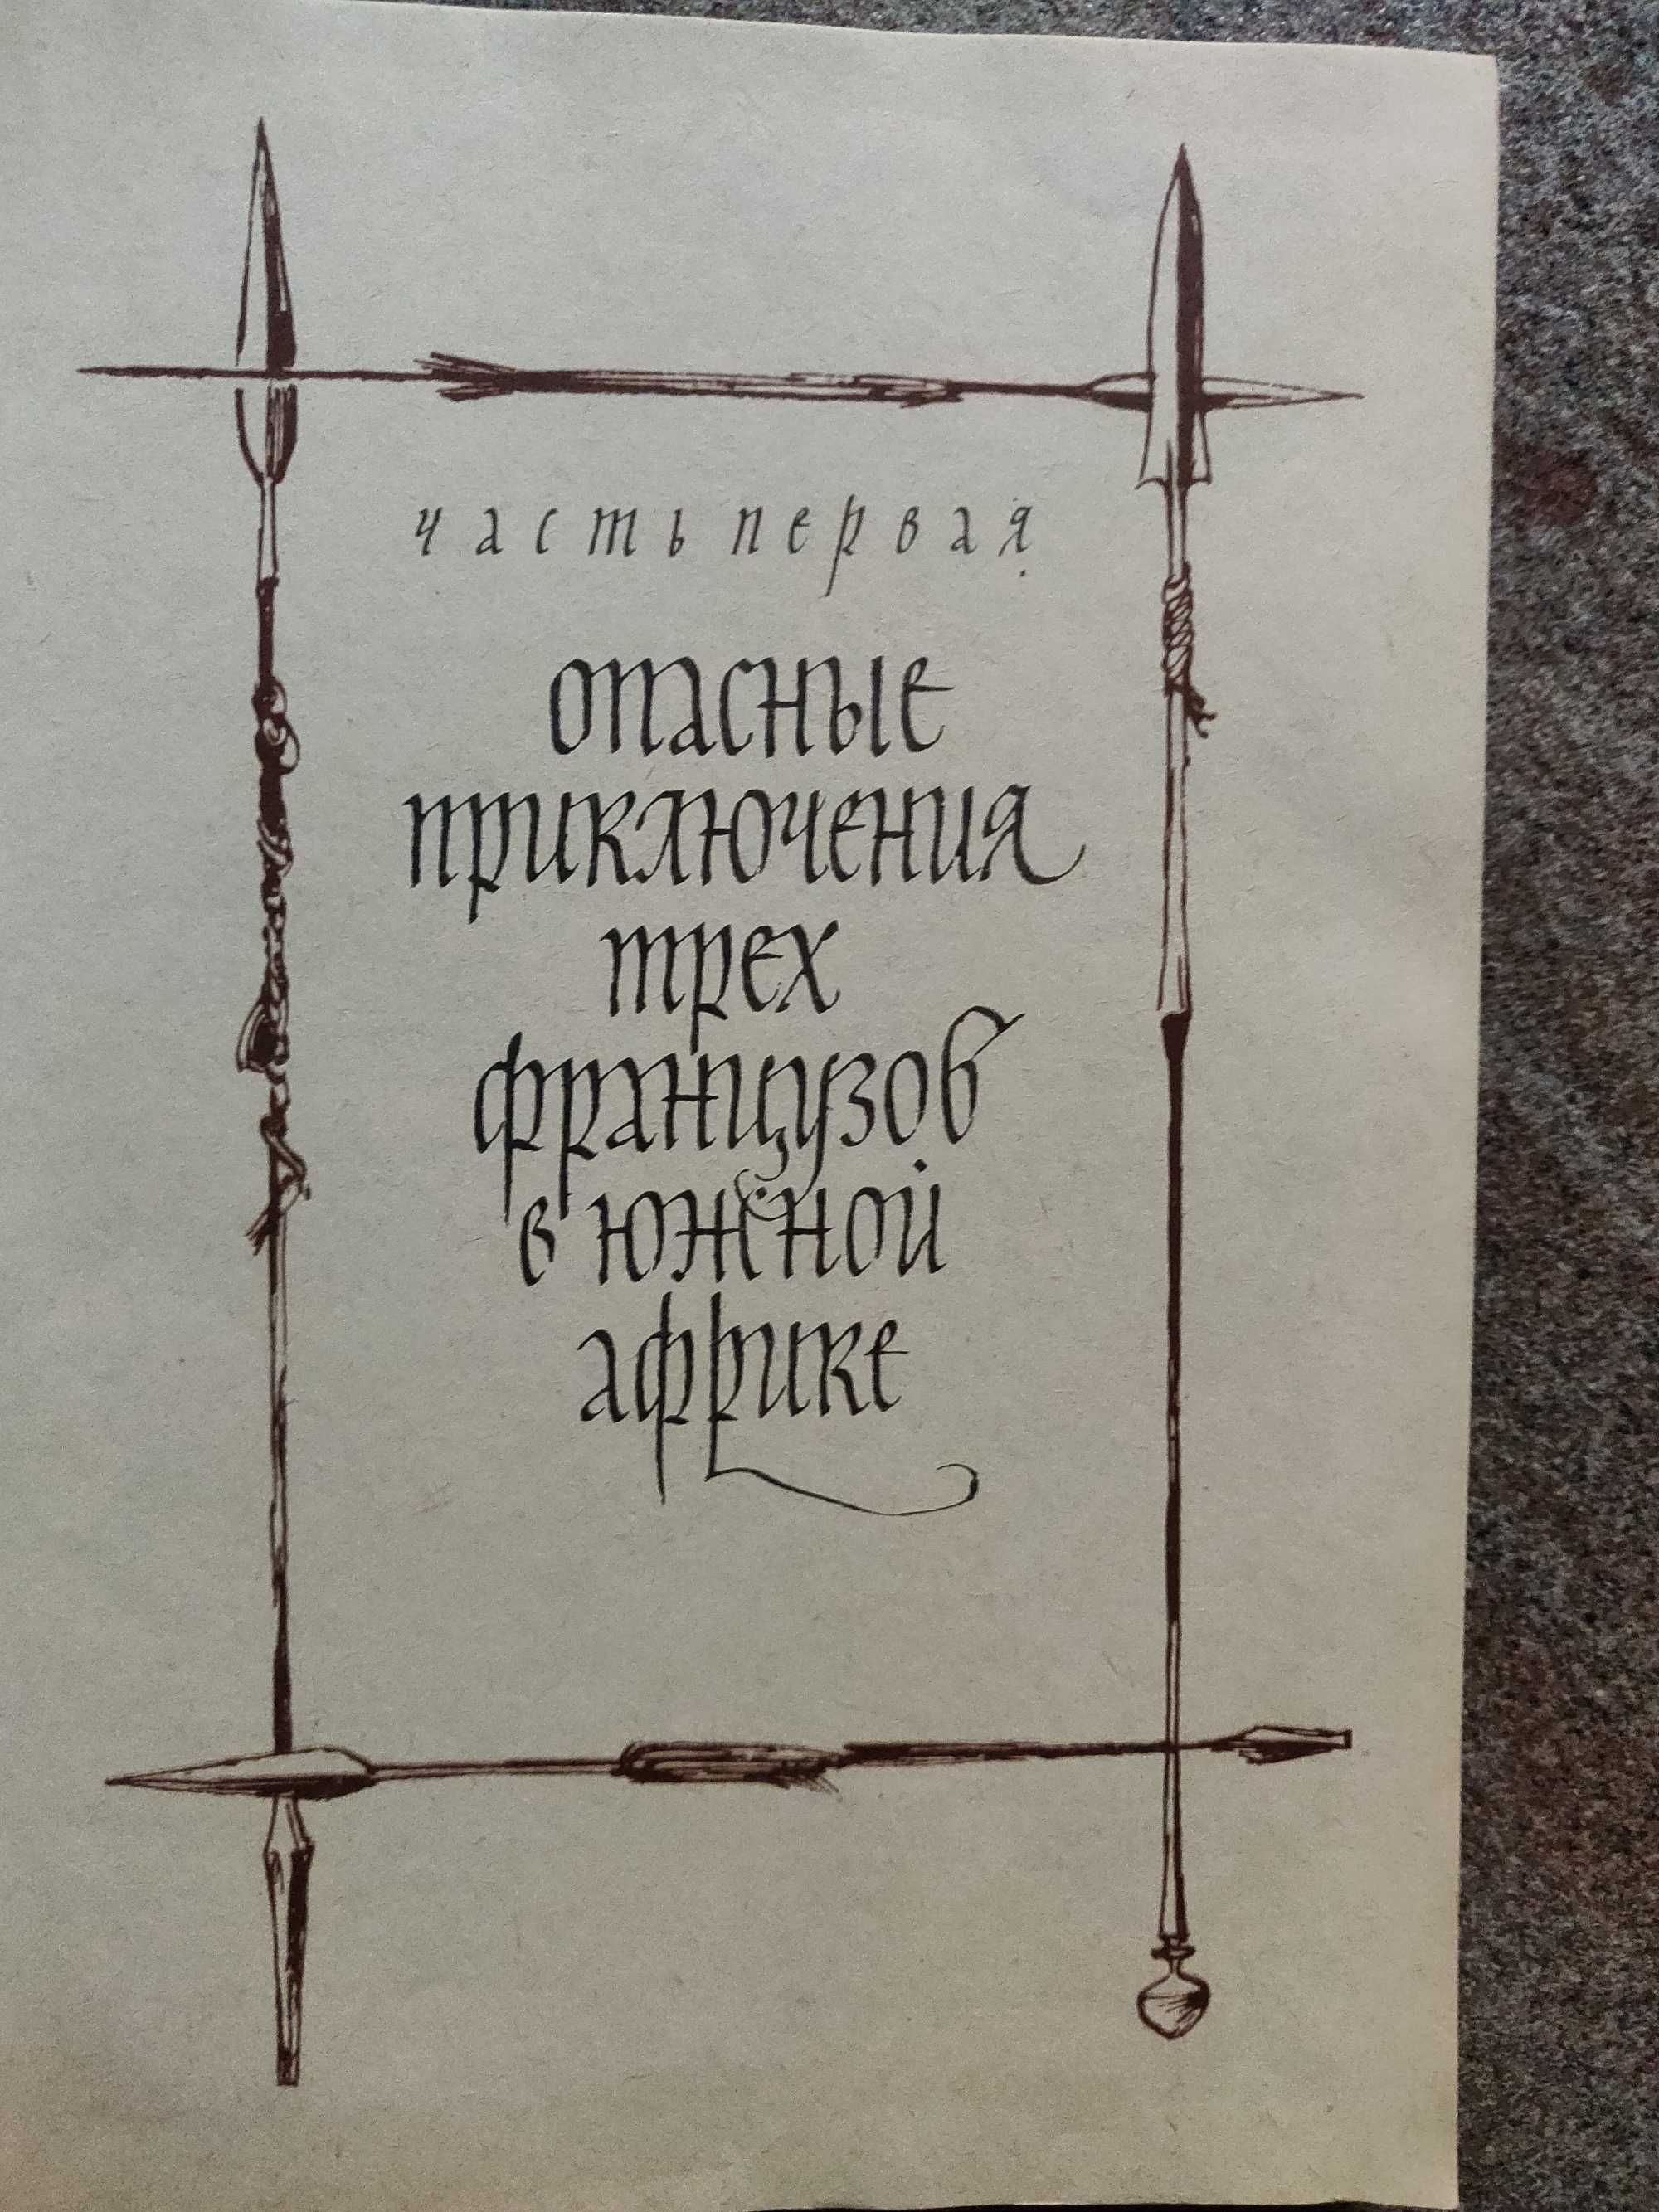 часть первая
опасные
приключения
трех
французов
в южной
африке